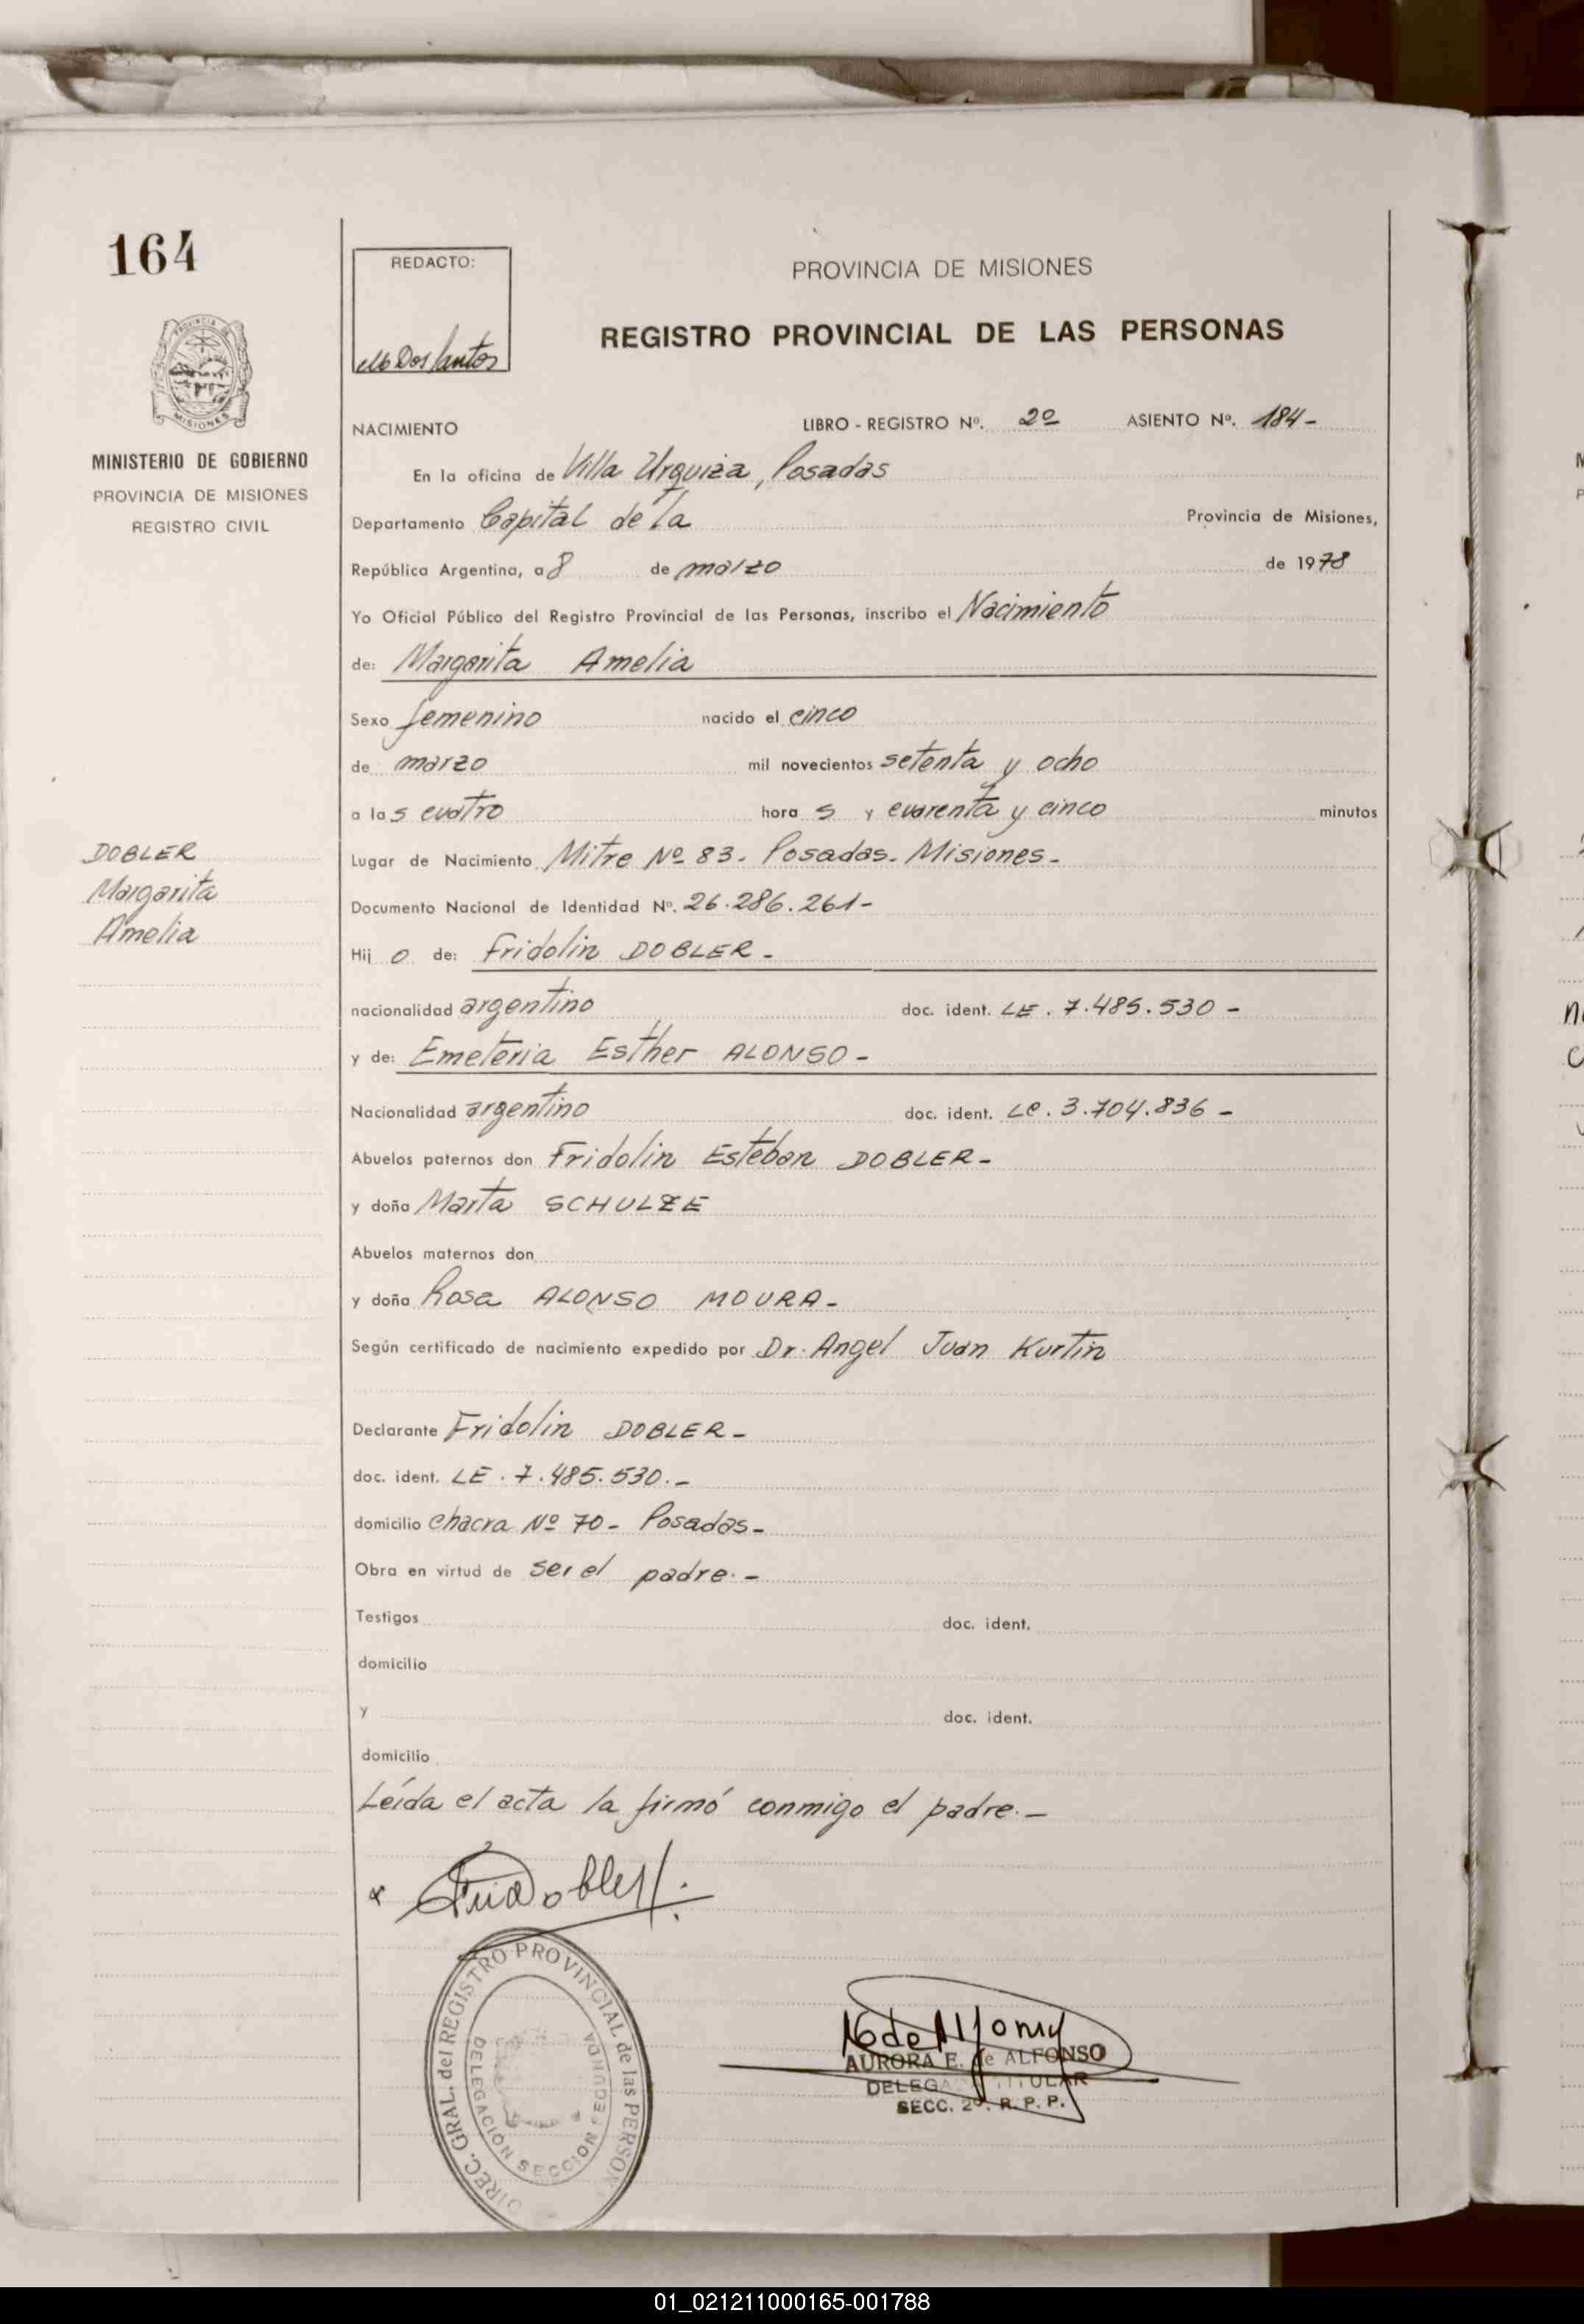 164
REDACTO:
PROVINCIA DE MISIONES
REGISTRO PROVINCIAL DE LAS PERSONAS
Dos Santos
MINISTERIO DE GOBIERNO
PROVINCIA DE MISIONES
REGISTRO CIVIL
NACIMIENTO LIBRO - REGISTRO Nº. 2º ASIENTO Nº. 184-
En la oficina de Villa Urquiza, Posadas
Departamento Capital de la Provincia de Misiones,
República Argentina, a 8 de marzo de 1978
Yo Oficial Público del Registro Provincial de las Personas, inscribo el Nacimiento
de: Margarita Amelia
Sexo femenino nacido el cinco
de marzo mil novecientos setenta y ocho
a las cuatro horas y cuarenta y cinco minutos
DOBLER
Margarita
Amelia
Lugar de Nacimiento Mitre Nº 83. Posadas. Misiones.-
Documento Nacional de Identidad Nº. 26.286.261-
Hij o de: Fridolin DOBLER.-
nacionalidad argentino doc. ident. LE. 7.485.530-
y de: Emeteria Esther ALONSO-
Nacionalidad argentino doc. ident. LC. 3.704.836-
Abuelos paternos don Fridolin Esteban DOBLER-
y doña Marta SCHULZE
Abuelos maternos don
y doña Rosa ALONSO MOURA-
Según certificado de nacimiento expedido por Dr. Angel Juan Kurtin
Declarante Fridolin DOBLER-
doc. ident. LE. 7.485.530.-
domicilio Chacra Nº 70- Posadas-
Obra en virtud de ser el padre.-
Testigos doc. ident.
domicilio
y doc. ident.
domicilio
Leída el acta la firmó conmigo el padre.-
DIREC. GRAL. del REGISTRO PROVINCIAL de las PERSON
DELEGACIÓN SECCION SEGUNDA
AURORA E. de ALFONSO
SECC. 2º. R. P. P.
01_021211000165-001788